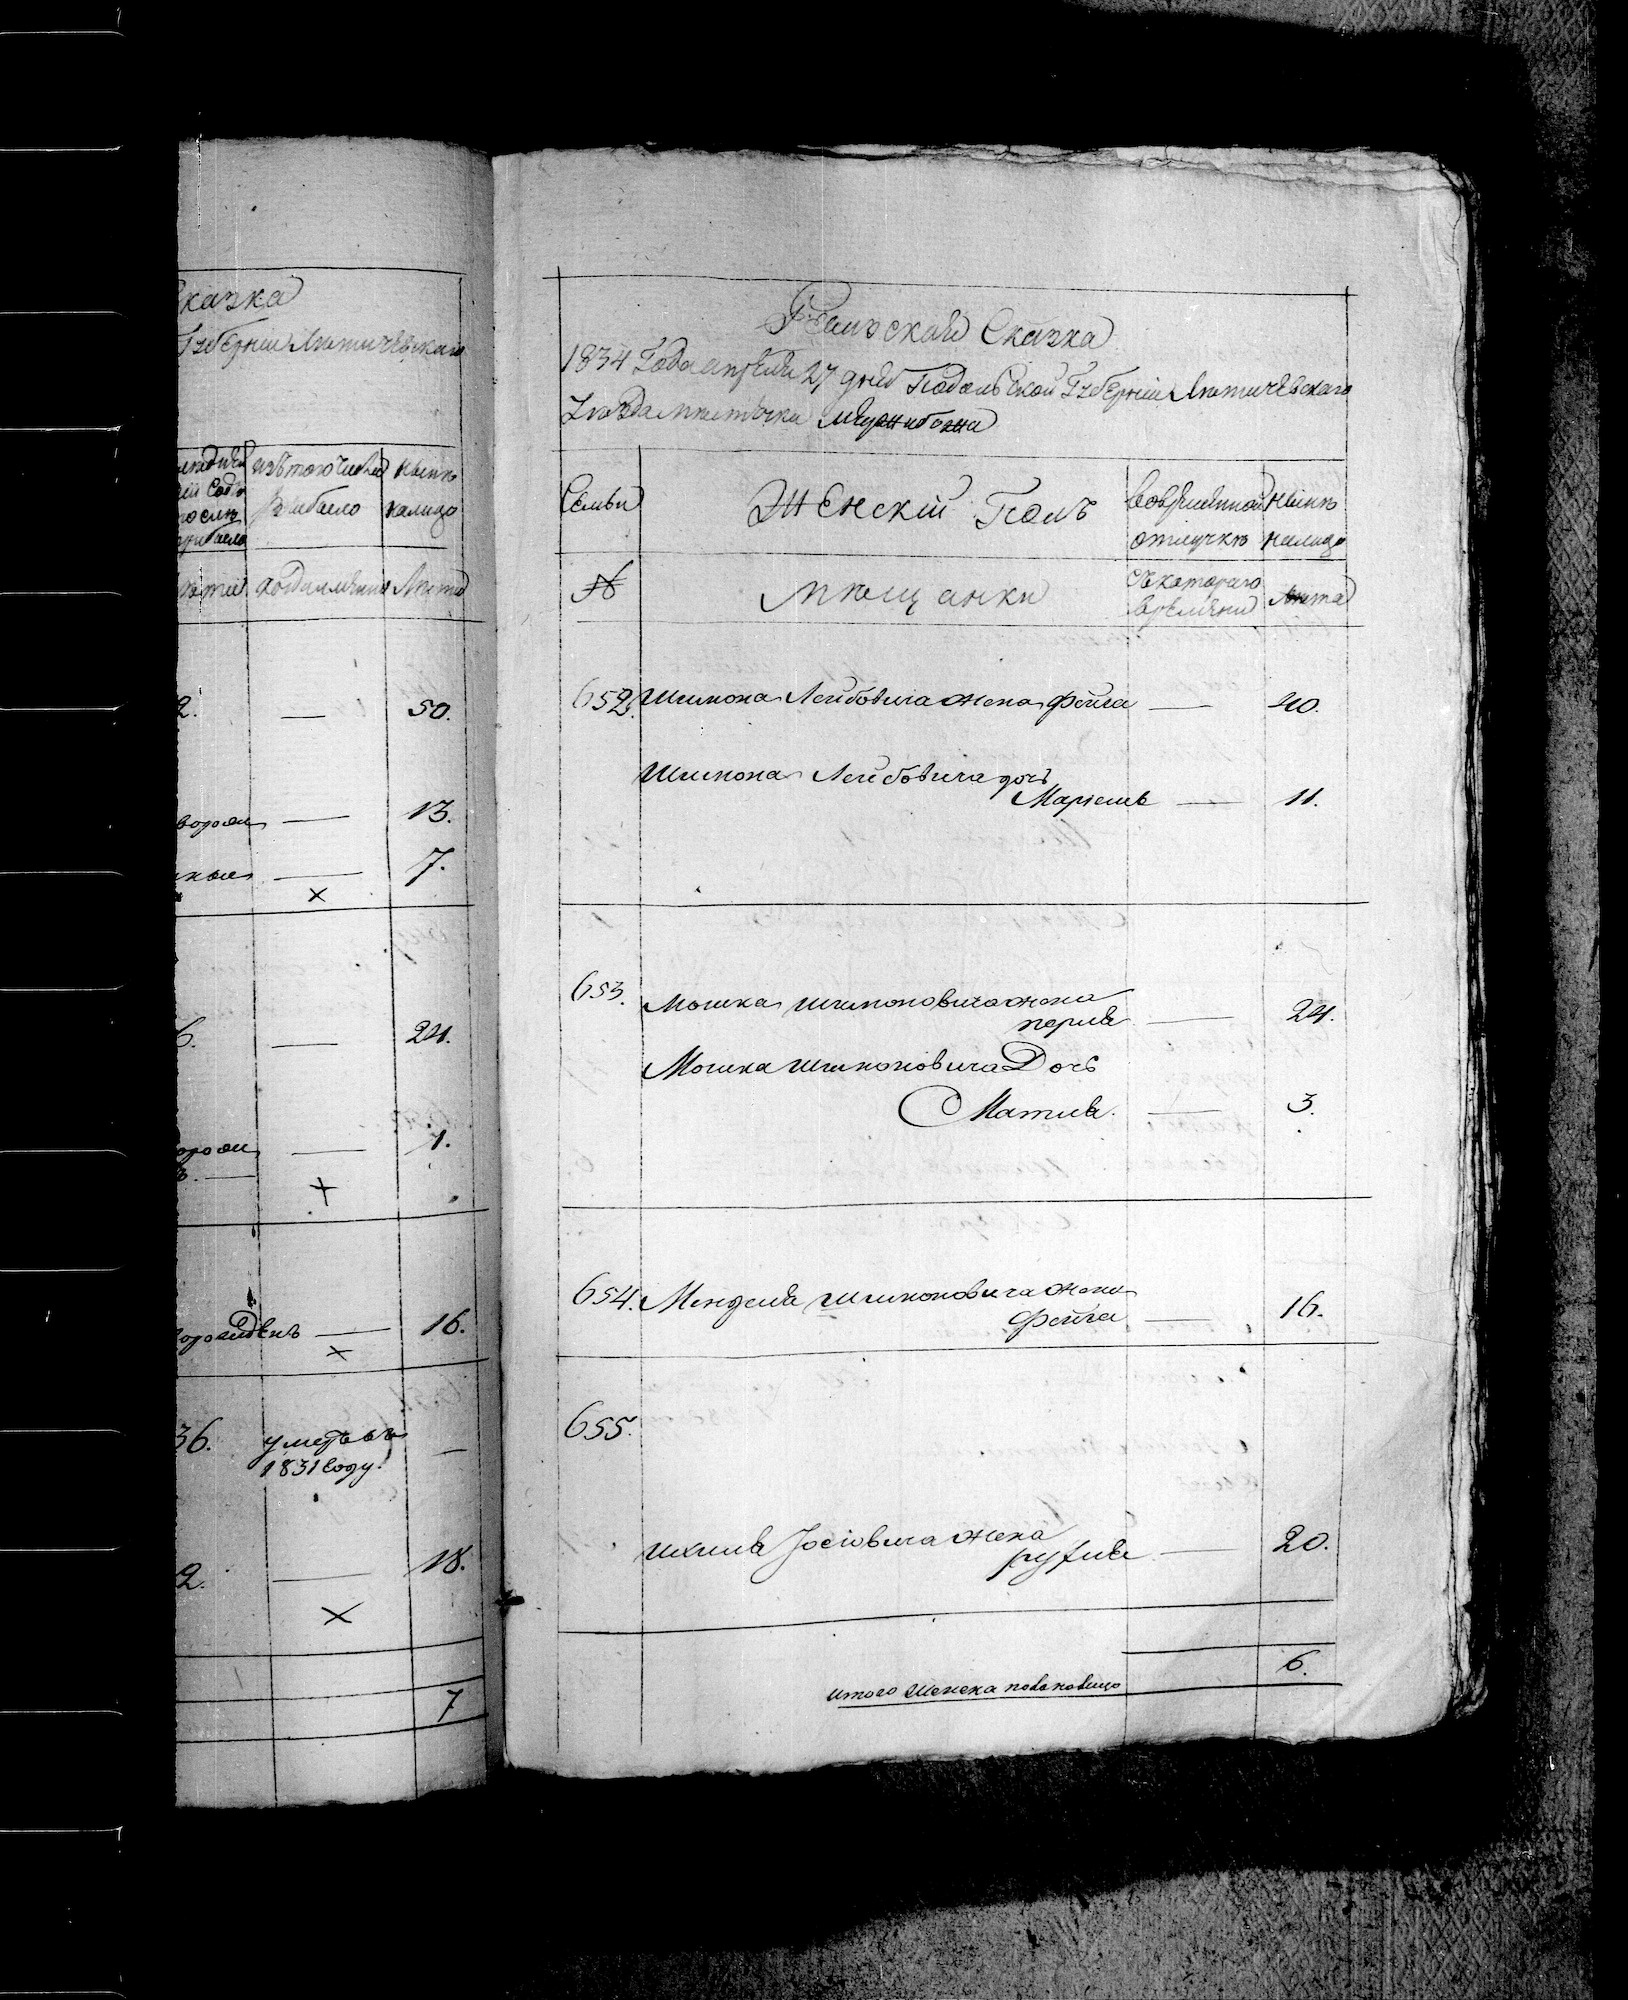 Сказка
Губерніи Лютичевскаго
изътого числа
выбыло
нынѣ
налицо
Лѣта
2.
—
50.
—
13.
—
7.
×
6.
—
24.
—
1.
×
—
16.
×
36.
умеръ въ
1831 году.
—
2.
—
18.
×
7
Ревизская Сказка
1834 Года апреля 27 дня Подольской Губерніи Лютичевскаго
Уезда местечка Межибожа
Семьи
Женскій Полъ
вовременной
отлучкѣ
нынѣ
налицо
№
мѣщанки
съ котораго
времяни
Лѣта
652. Шимона Лейбовича жена Фейга — 40.
Шимона Лейбовича дочь
Маріемъ — 11.
653. Мошка Шимоновича жена
перля — 24.
Мошка Шимоновича Дочь
Матля. — 3.
654. Менделя Шимоновича жена
Фейга — 16.
655.
Ихиля Іосіовича жена
рухля — 20.
итого женска пола налицо
6.